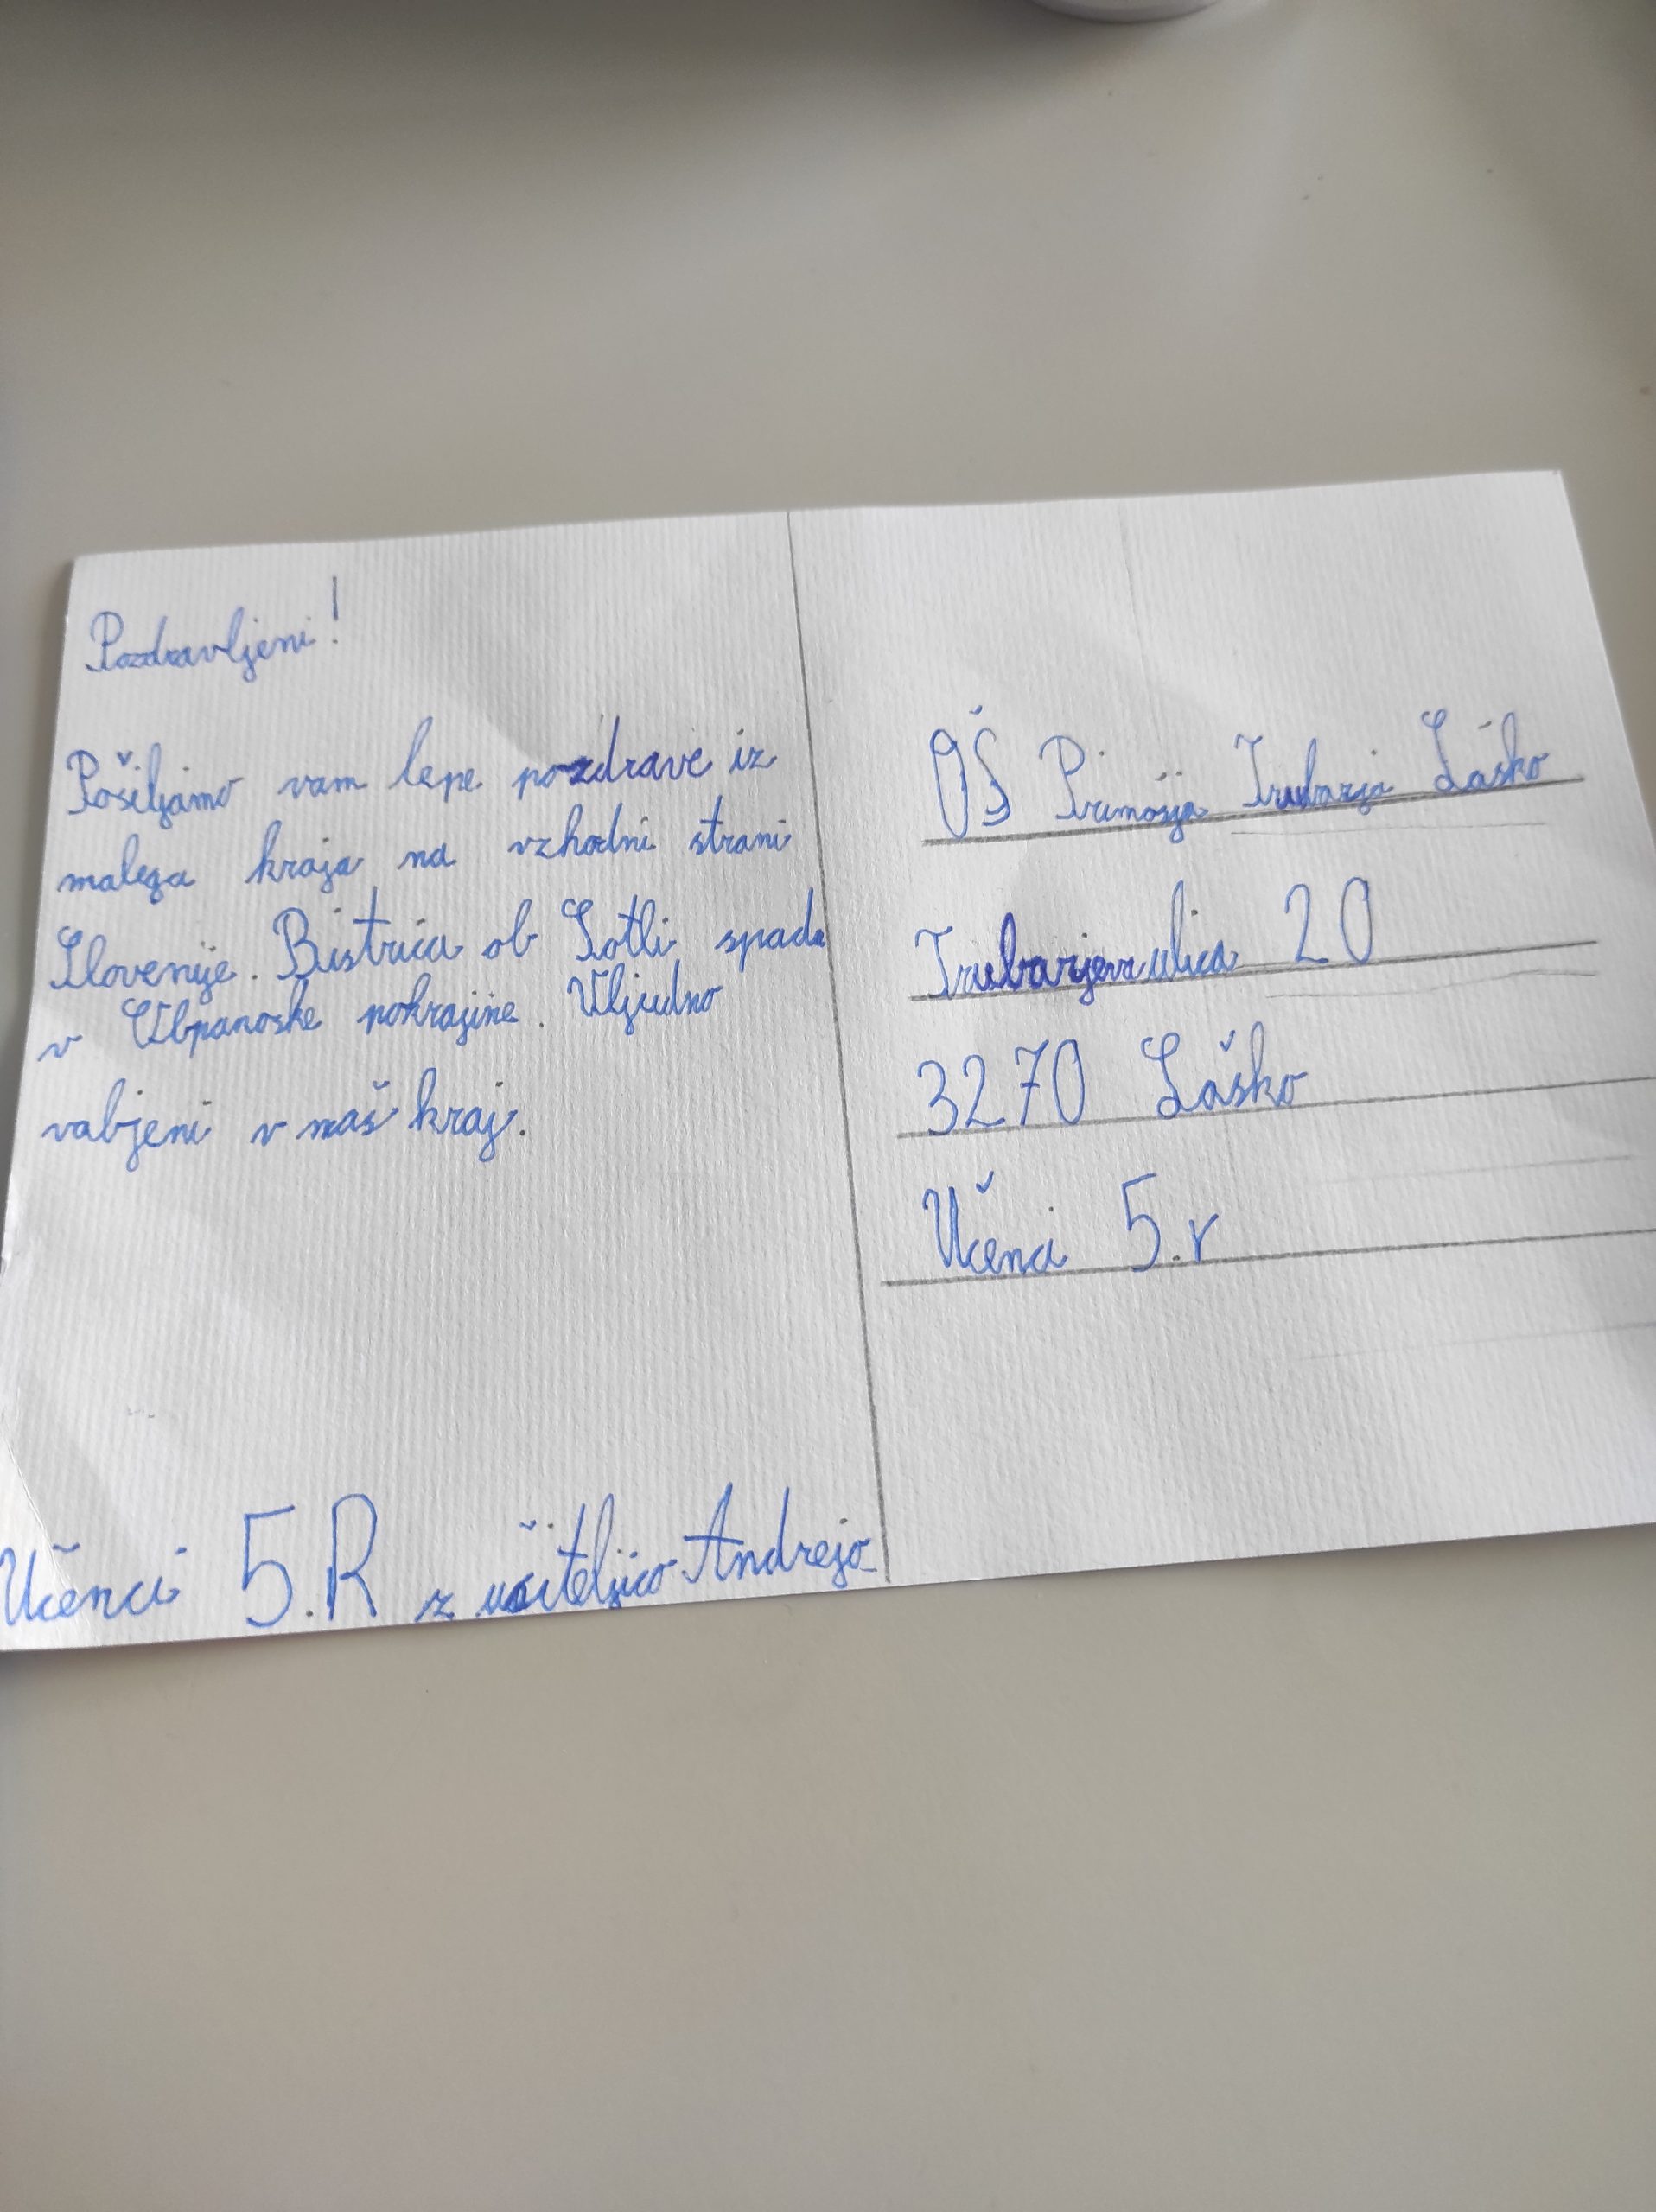 Pozdravljeni!
Pošiljamo vam lepe pozdrave iz
malega kraja na vzhodni strani
Slovenije. Bistrica ob Sotli spada
v pokrajine. Vljudno
vabjeni v naš kraj.
Učenci 5.R z učiteljico Andrejo
OŠ Primoža Trubarja Laško
Trubarjeva ulica 20
3270 Laško
Učenci 5.r